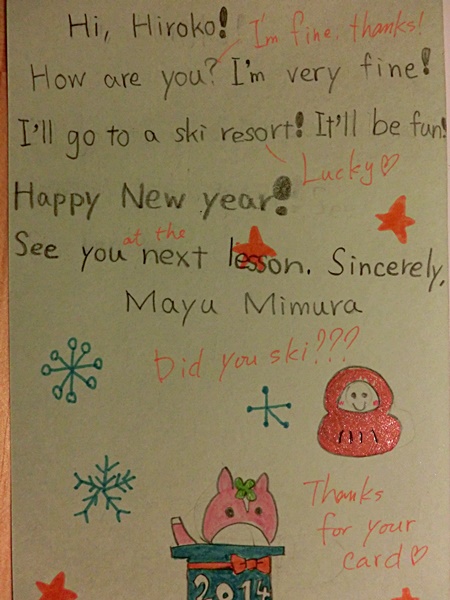 Hi, Hiroko!
I'm fine, thanks!
How are you? I'm very fine!
I'll go to a ski resort! It'll be fun!
Lucky♡
Happy New year!
at the
See you next lesson. Sincerely,
Mayu Mimura
Did you ski???
Thanks
for your
card♡
2014